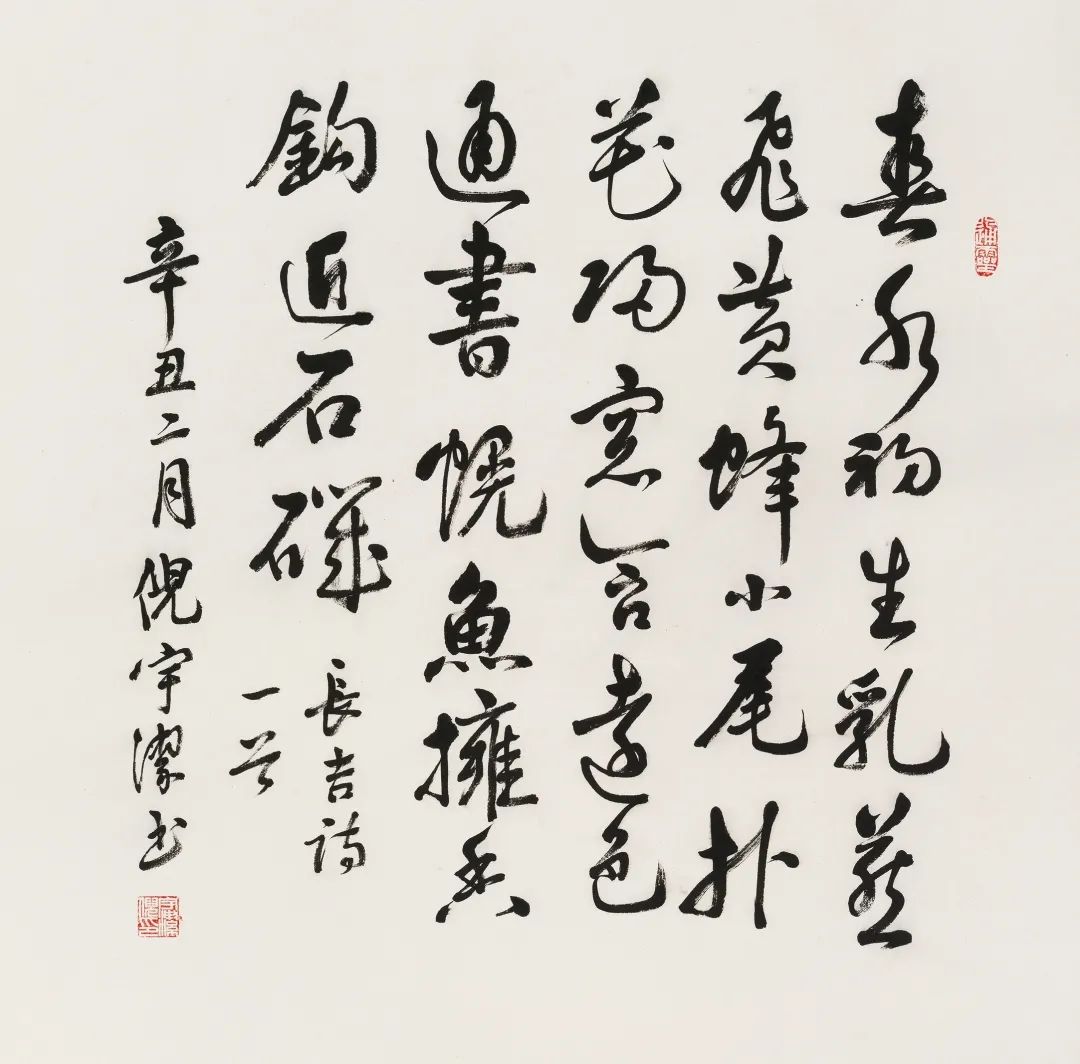 春水初生乳燕
飛黃蜂小尾扑
花歸窓含遠色
通書幌魚擁香
鈎近石磯
長吉詩
一首
辛丑二月倪宇潔书